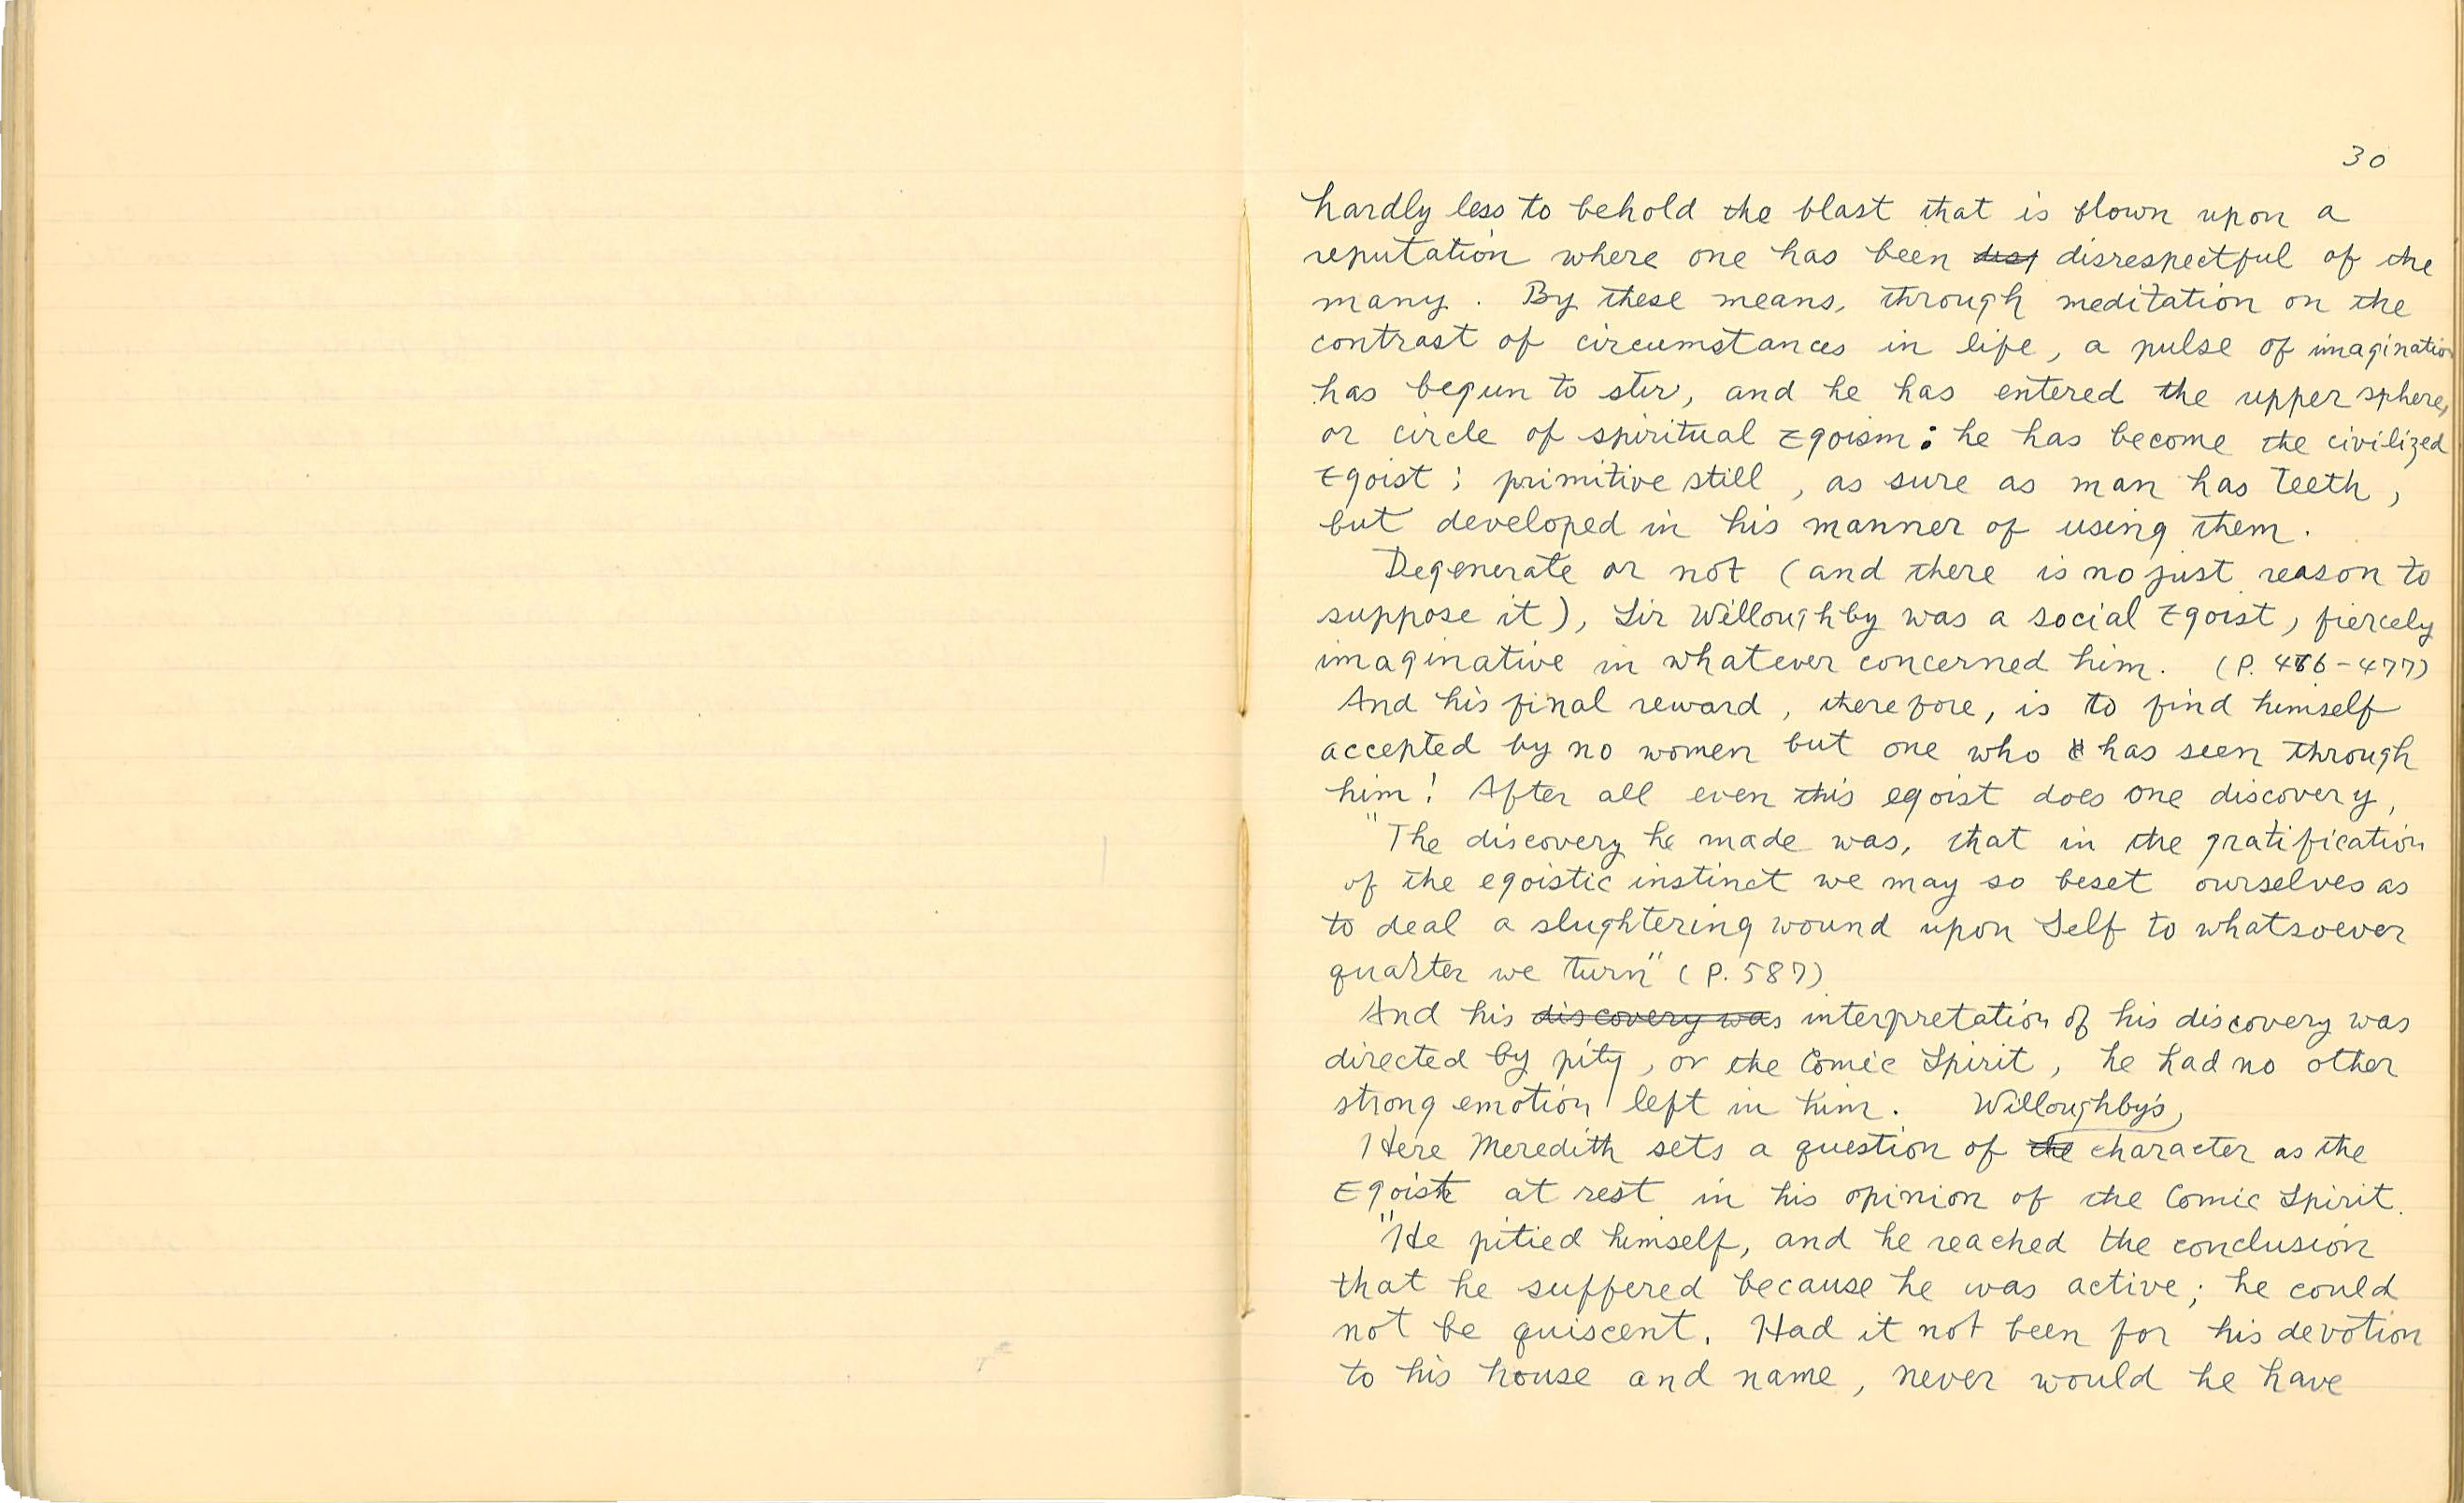 30
hardly less to behold the blast that is blown upon a
reputation where one has been disrespectful of the
many. By these means, through meditation on the
contrast of circumstances in life, a pulse of imagination
has begun to stir, and he has entered the upper sphere,
or circle of spiritual Egoism: he has become the civilized
Egoist; primitive still, as sure as man has teeth,
but developed in his manner of using them.
Degenerate or not (and there is no just reason to
suppose it), Sir Willoughby was a social Egoist, fiercely
imaginative in whatever concerned him. (P. 476-477)
And his final reward, therefore, is to find himself
accepted by no women but one who has seen through
him! After all even this egoist does one discovery,
"The discovery he made was, that in the gratification
of the egoistic instinct we may so beset ourselves as
to deal a slughtering wound upon Self to whatsoever
quarter we turn" (P. 587)
And his discovery was interpretation of his discovery was
directed by pity, or the Comic Spirit, he had no other
strong emotion left in him. Willoughby's,
Here Meredith sets a question of the character as the
Egoist at rest in his opinion of the Comic Spirit.
"He pitied himself, and he reached the conclusion
that he suffered because he was active; he could
not be quiscent. Had it not been for his devotion
to his house and name, never would he have